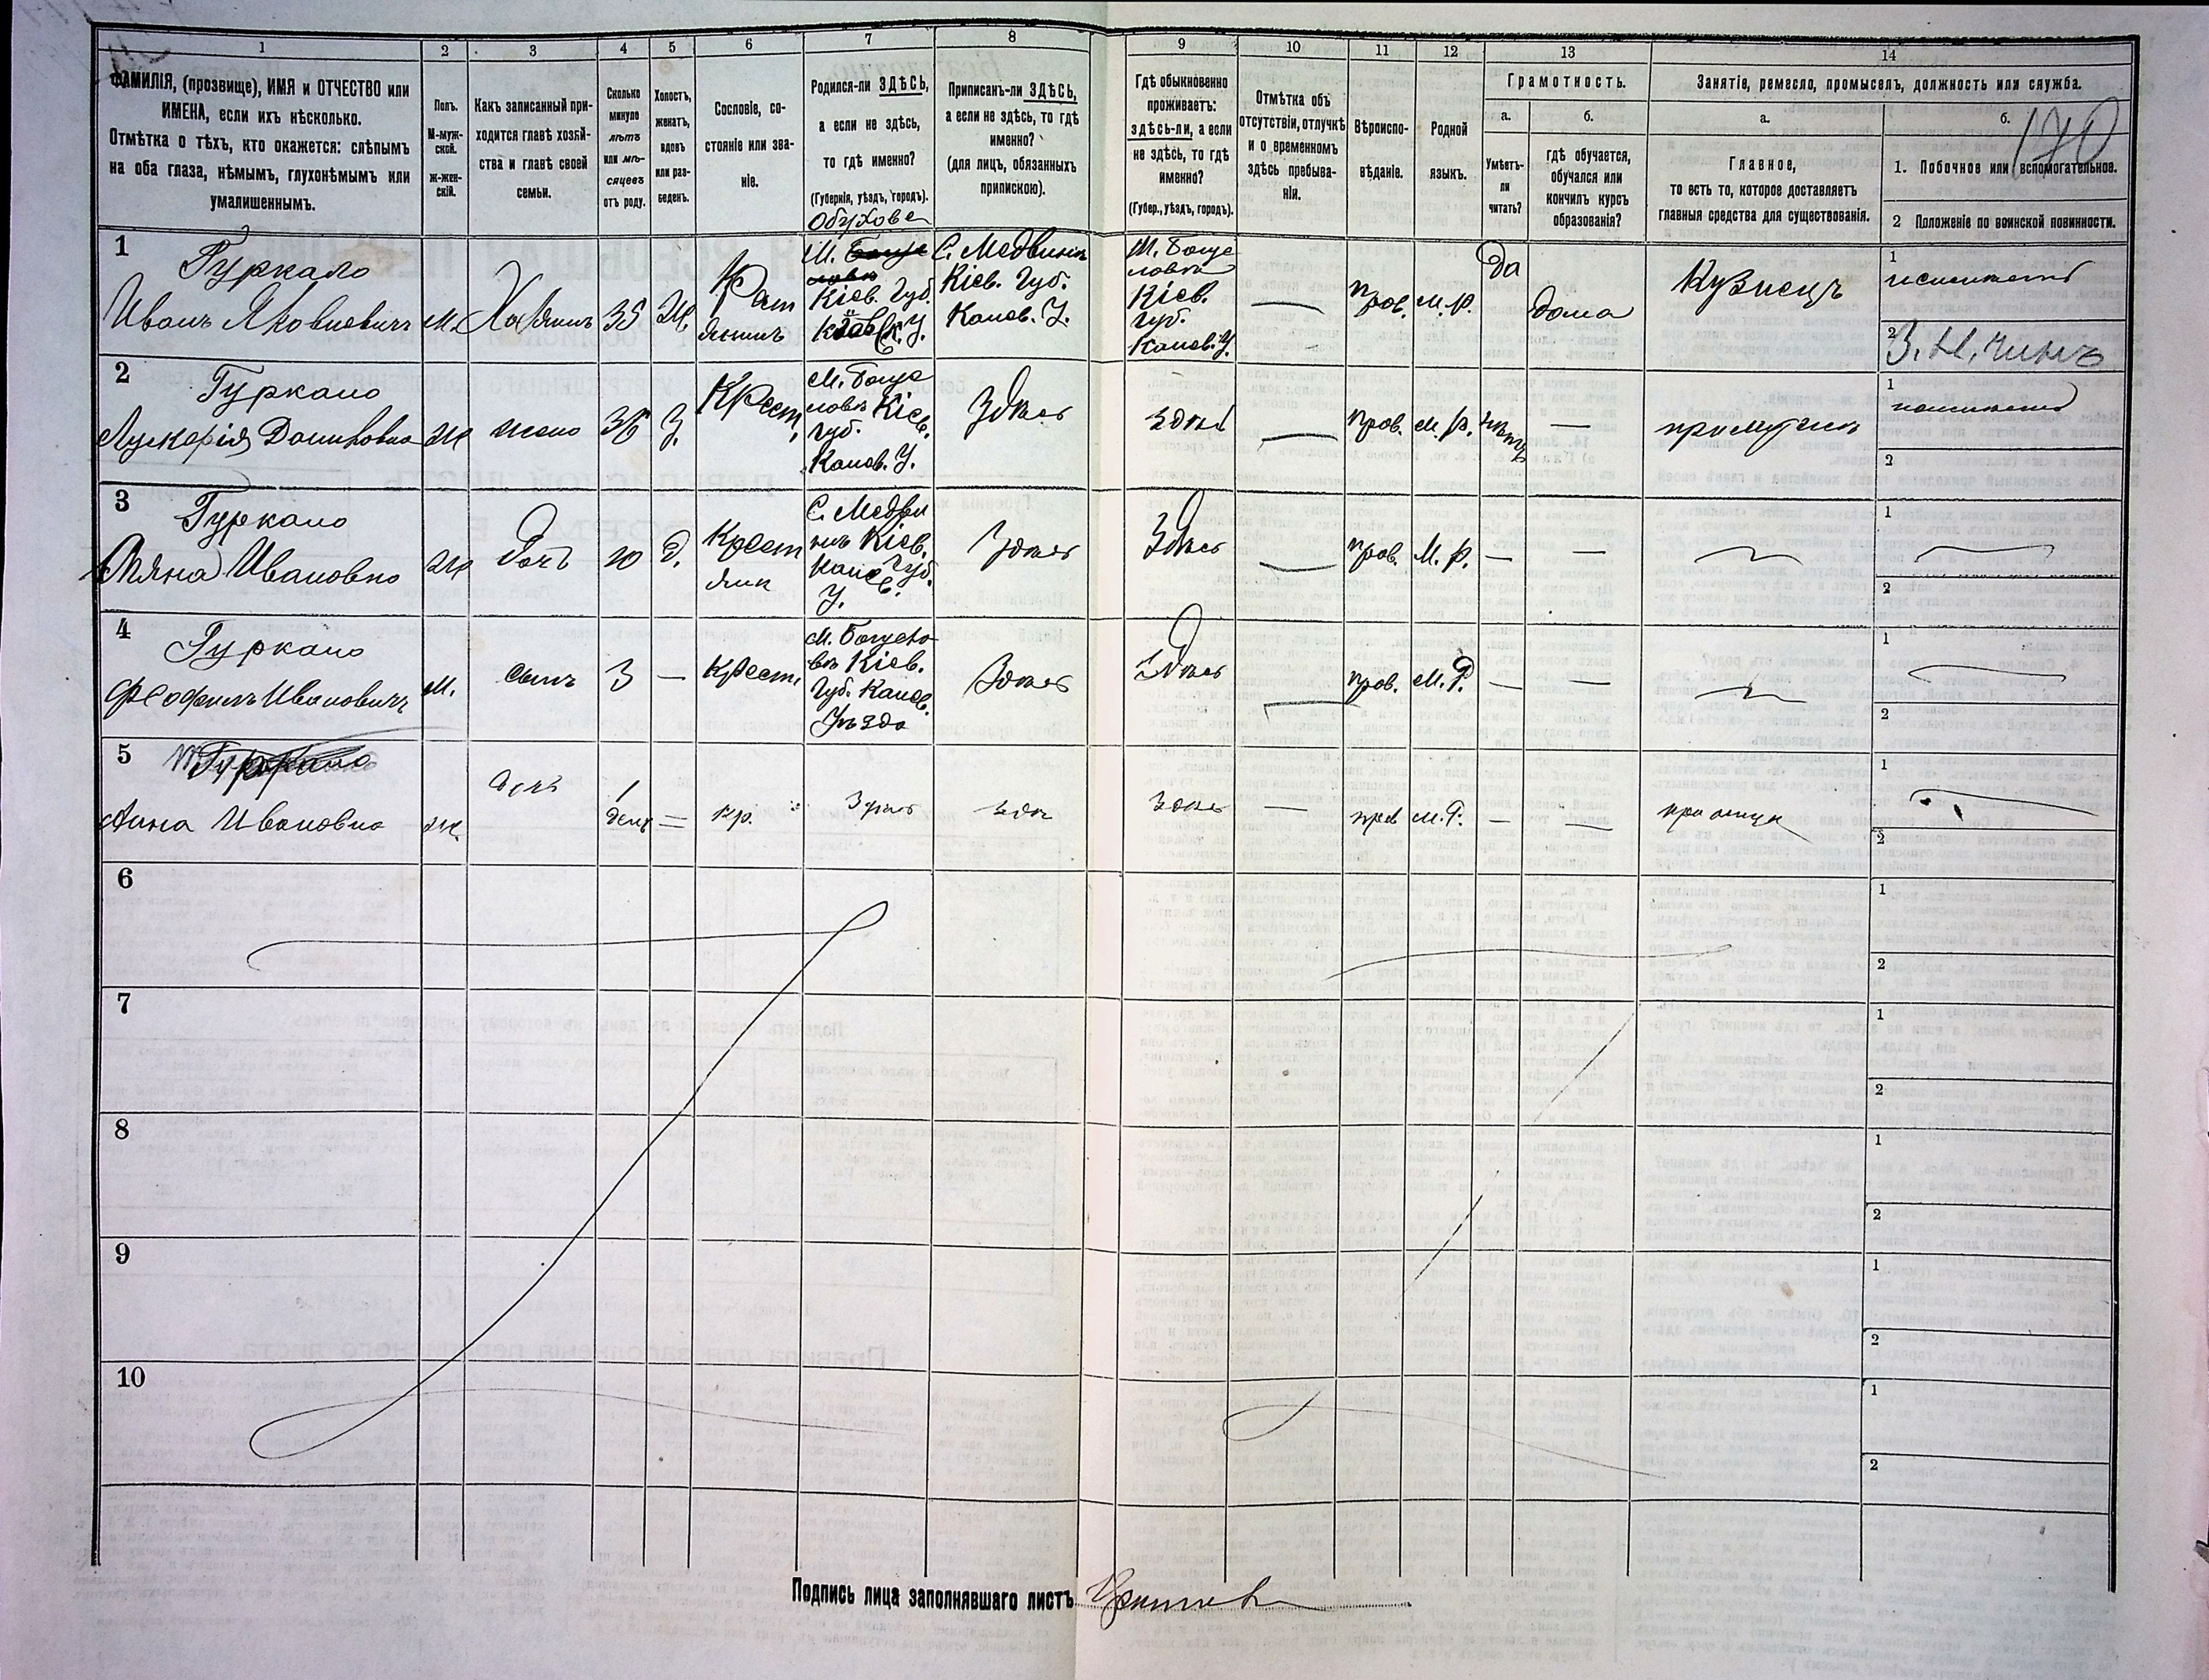 1
2
3
4
5
6
7
8
9
10
11
12
13
14
ФАМИЛІЯ, (прозвище), ИМЯ и ОТЧЕСТВО или
ИМЕНА, если ихъ нѣсколько.
Отмѣтка о тѣхъ, кто окажется: слѣпымъ
на оба глаза, нѣмымъ, глухонѣмымъ или
умалишеннымъ.
Полъ.
М-муж-
ской.
ж-жен-
скій.
Какъ записанный при-
ходится главѣ хозяй-
ства и главѣ своей
семьи.
Сколько
минуло
лѣтъ
или мѣ-
сяцевъ
отъ роду.
Холостъ,
женатъ,
вдовъ
или раз-
веденъ.
Сословіе, со-
стояніе или зва-
ніе.
Родился-ли ЗДѢСЬ,
а если не здѣсь,
то гдѣ именно?
(Губернія, уѣздъ, городъ).
Приписанъ-ли ЗДѢСЬ,
а если не здѣсь, то гдѣ
именно?
(для лицъ, обязанныхъ
припискою).
Гдѣ обыкновенно
проживаетъ:
здѣсь-ли, а если
не здѣсь, то гдѣ
именно?
(Губер., уѣздъ, городъ).
Отмѣтка объ
отсутствіи, отлучкѣ
и о временномъ
здѣсь пребыва-
ніи.
Вѣроиспо-
вѣданіе.
Родной
языкъ.
Грамотность.
а.
Умѣетъ-
ли
читать?
б.
гдѣ обучается,
обучался или
кончилъ курсъ
образованія?
Занятіе, ремесло, промыселъ, должность или служба.
а.
Главное,
то есть то, которое доставляетъ
главныя средства для существованія.
б.
170
1. Побочное или вспомогательное.
2 Положеніе по воинской повинности.
1
Гуркало
Иванъ Яковлевичъ
м.
Хозяинъ
35
Ж.
Крест
янинъ
Обухове
М.
Кіев. Губ.
Кіев. У.
С. Медвинъ
Кіев. Губ.
Канев. У.
М. Богус
лавъ
Кіев.
Губ.
Канев. У.
—
Пров.
М. Р.
Да
дома
Кузнецъ
1
2
З. Н. Чинъ
2
Гуркало
Лукерія
ж
жена
36
З.
Крест.
М. Богус
лавъ Кіев.
Губ.
Канев. У.
Здѣсь
здѣсь
—
Пров.
М. Р.
нѣтъ
—
при мужѣ
1
2
3
Гуркало
Ивановна
ж
дочь
10
д.
Крест
янк
С. Медви
нъ Кіев.
Губ.
Канев.
У.
Здѣсь
Здѣсь
—
Пров.
М. Р.
—
—
1
2
4
Гуркало
Феофилъ Ивановичъ
м.
сынъ
3
—
Крест.
М. Богусла
въ Кіев.
Губ. Канев.
Уѣзда
Здѣсь
Здѣсь
Пров.
М. Р.
—
—
1
2
5
Гуркало
Анна Ивановна
ж.
дочь
1
день
=
кр.
Здѣсь
здѣс
Здѣсь
—
прв
М. Р.
—
—
при отцѣ
1
2
6
1
2
7
1
2
8
1
2
9
1
2
10
1
2
Подпись лица заполнявшаго листъ